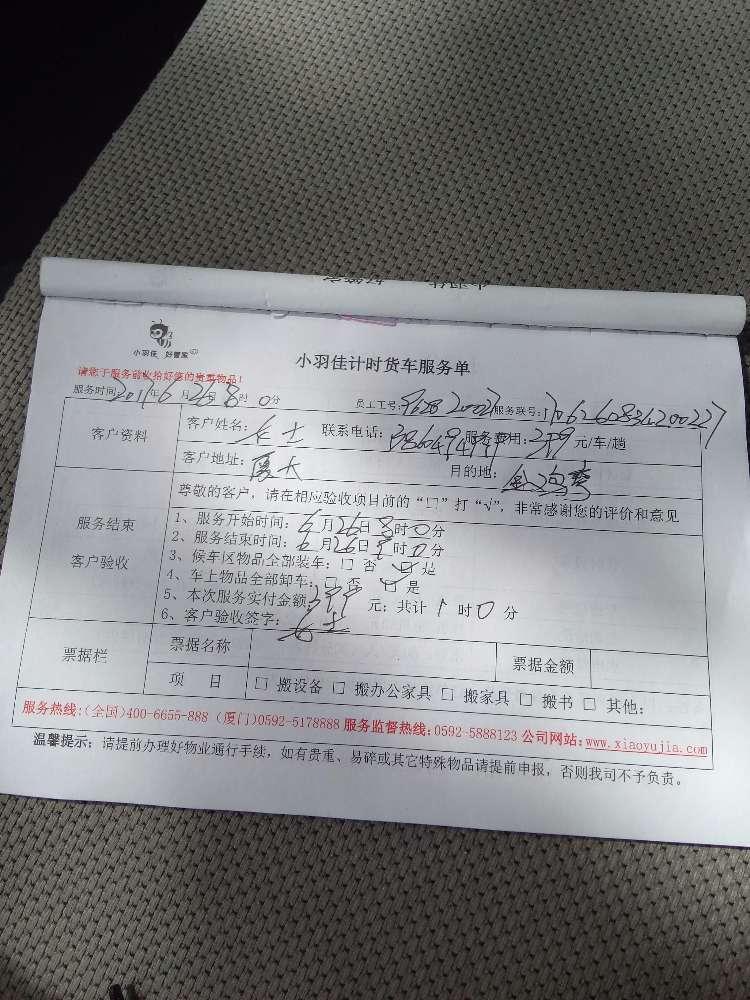 小羽佳 好管家
小羽佳计时货车服务单
请您于服务前收拾好您的贵重物品!
服务时间:201 年6月26日8时0分 员工工号: 服务联号:
客户资料 客户姓名: 女士 联系电话: 服务费用:399元/车/趟
客户地址:厦大 目的地:
服务结束 客户验收 尊敬的客户,请在相应验收项目前的“□”打“√”,非常感谢您的评价和意见
1、服务开始时间:6月26日8时0分
2、服务结束时间:6月26日 时0分
3、候车区物品全部装车:□ 否 ☑ 是
4、车上物品全部卸车:□ 否 ☑ 是
5、本次服务实付金额:399元;共计 时0分
6、客户验收签字: 女士
票据栏 票据名称 票据金额
项 目 □ 搬设备 □ 搬办公家具 □ 搬家具 □ 搬书 □ 其他:
服务热线:(全国)400-6655-888 (厦门)0592-5178888 服务监督热线:0592-5888123 公司网站:www.xiaoyujia.com
温馨提示:请提前办理好物业通行手续,如有贵重、易碎或其它特殊物品请提前申报,否则我司不予负责。